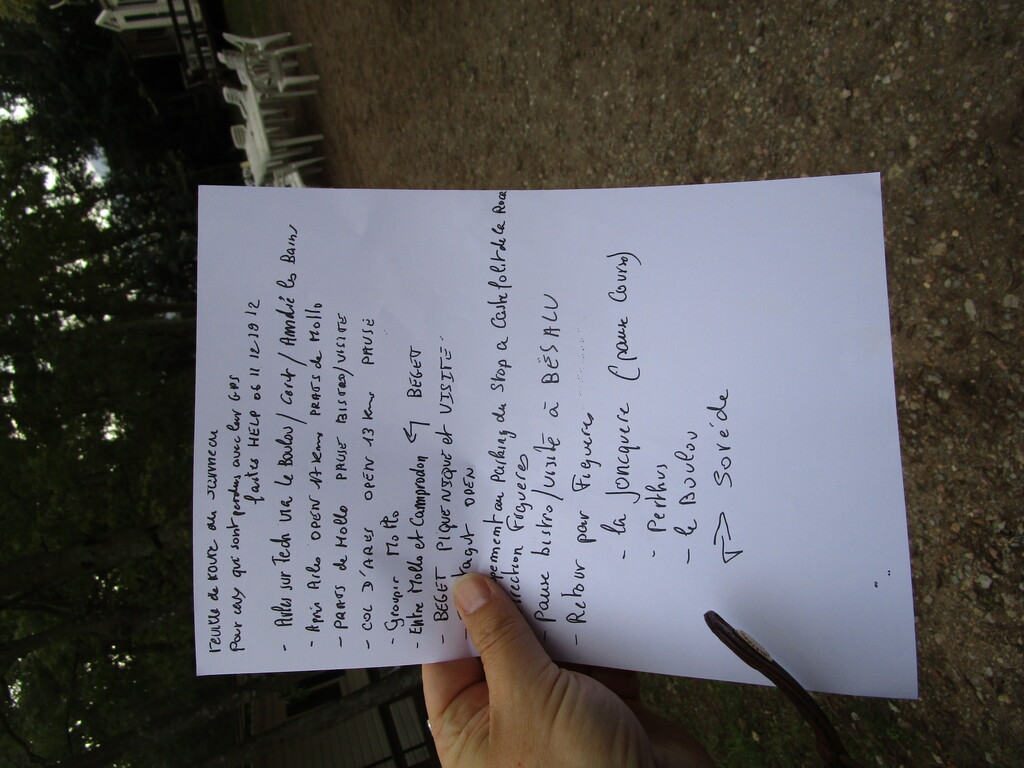 feuille de route du
Pour ceux qui sont perdus avec leur GPS
faites HELP 06 11 12 19 12
- Arles sur Tech via le Boulou / Ceret / Amélie les Bains
- Après Arles OPEN 17 kms PRATS de Mollo
- PRATS de Mollo PAUSE BISTRO/VISITE
- COL D'ARES OPEN 13 kms PAUSE
- Groupir Mollo
- Entre Mollo et Camprodon BEGET
- BEGET PIQUE NIQUE et VISITE.
OPEN
au Parking du Stop a Castefolit de la Roca
Figueres
- Pause bistro / visite à BÉSALU
- Retour par Figueres
- la Joncquere (pause courso)
- Perthus
- le Boulou
⇒ Soréde